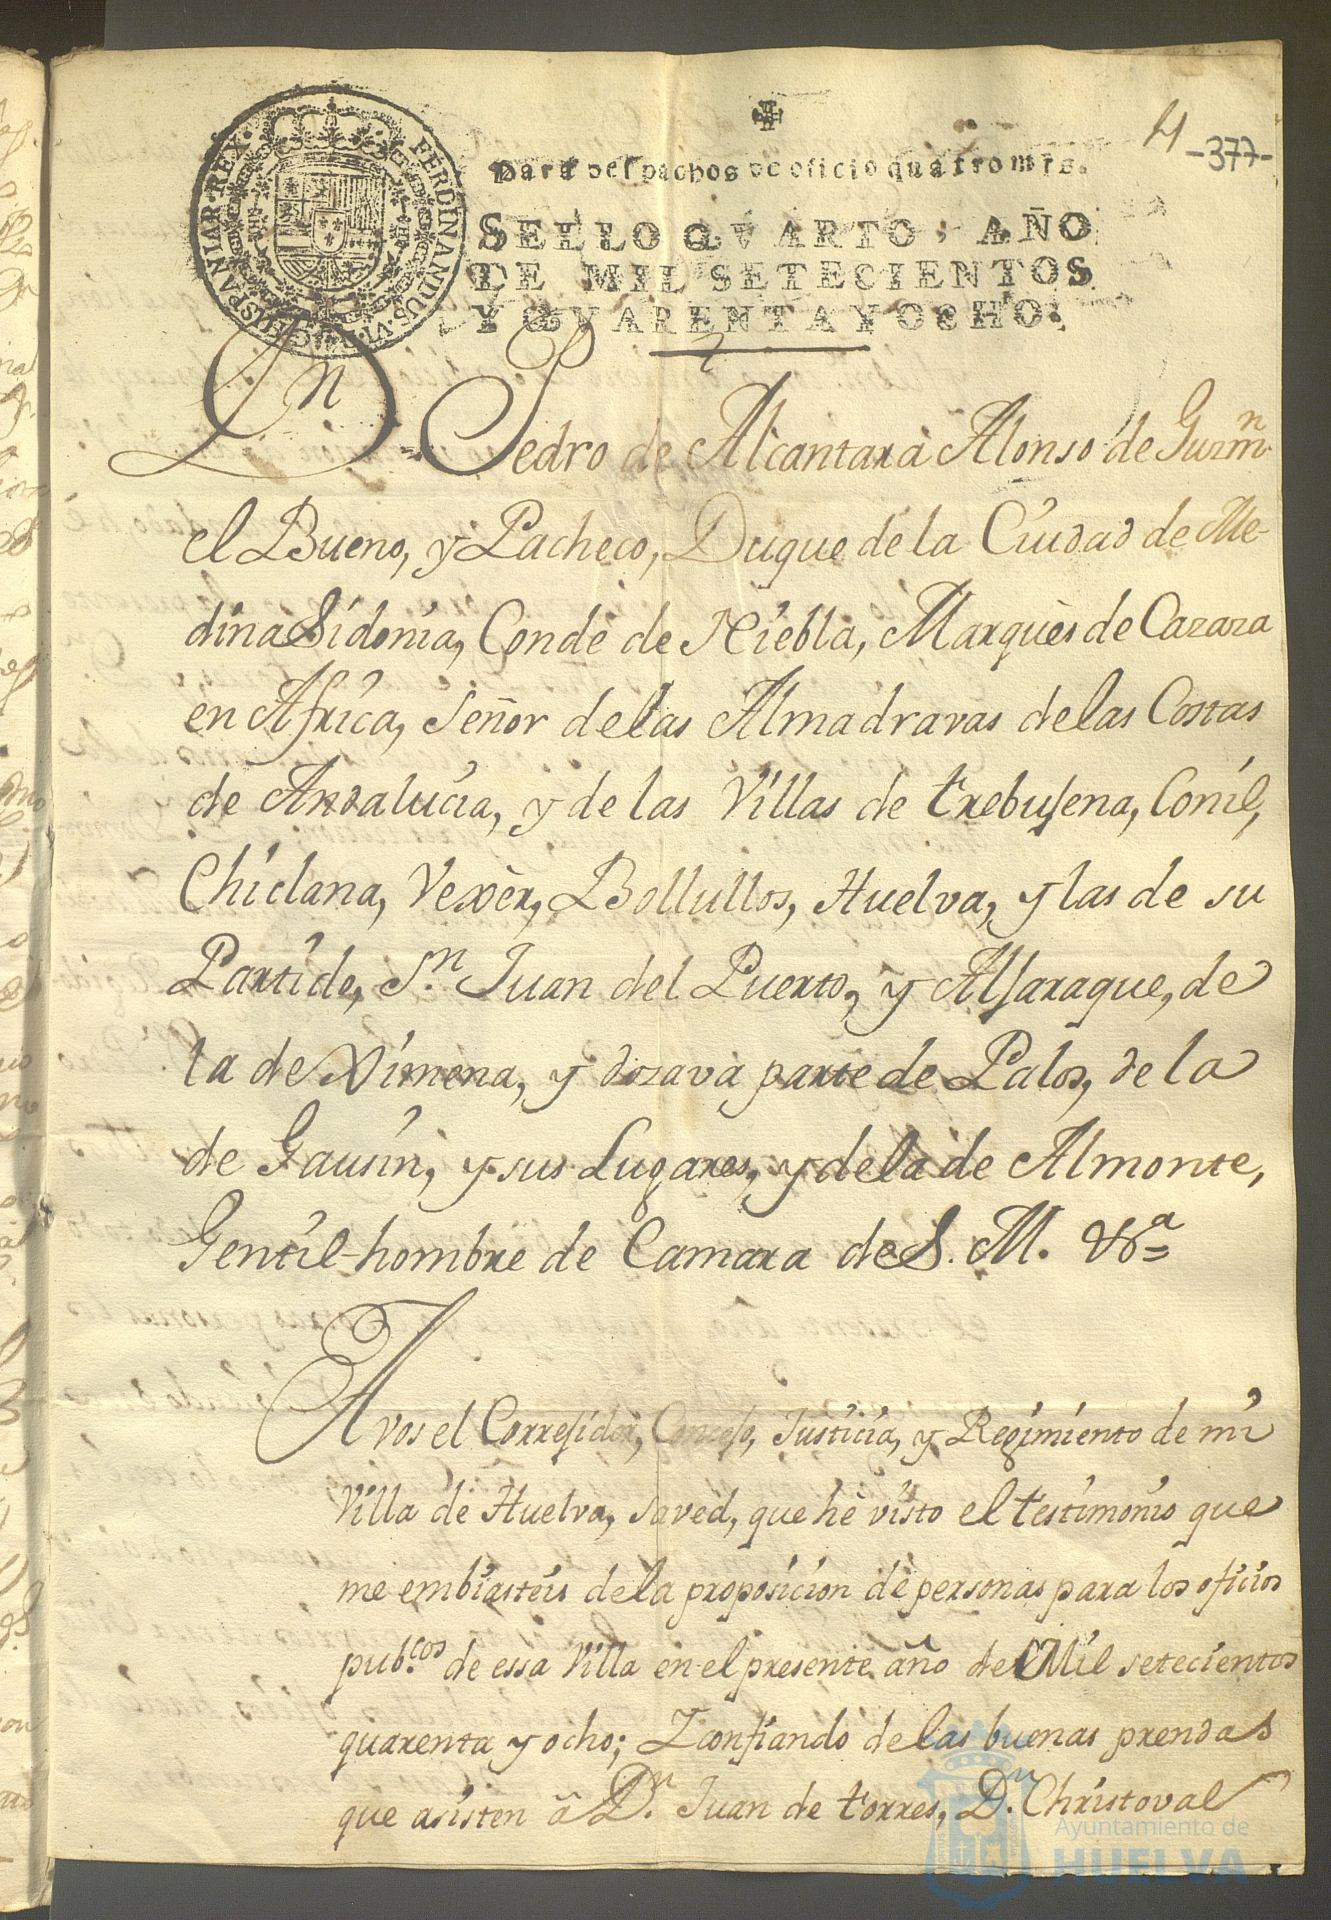 4
-377-
Para despachos de oficio quatro mrs.
SELLO QVARTO, AÑO
DE MIL SETECIENTOS
Y QVARENTA Y OCHO.
FERDINANDUS·VI·D·G·HISPANIAR·REX·
Dn Pedro de Alcantara Alonso de Guzmn
el Bueno, y Pacheco, Duque de la Ciudad de Me-
dina Sidonia, Conde de Niebla, Marquès de Cazaza
en Africa, Señor de las Almadravas de las Costas
de Andalucia, y de las Villas de trebujena, Conil,
Chiclana, Vexèr, Bollullos, Huelva, y las de su
Partido, Sn. Juan del Puerto, y Alfaraque, de
la de Ximena, y dozava parte de Palos, de la
de Gausin, y sus Lugares, y de la de Almonte,
Gentil-hombre de Camara de S. M. &a
A vos el Corregidor, Concejo, Justicia, y Regimiento de mi
Villa de Huelva, saved, que hè visto el testimonio que
me embiasteis de la proposicion de personas para los oficios
pubcos. de essa Villa en el presente año de Mil setecientos
quarenta y ocho; Y confiando de las buenas prendas
que asisten â Dn. Juan de torres, Dn. Christoval
Ayuntamiento de
HUELVA